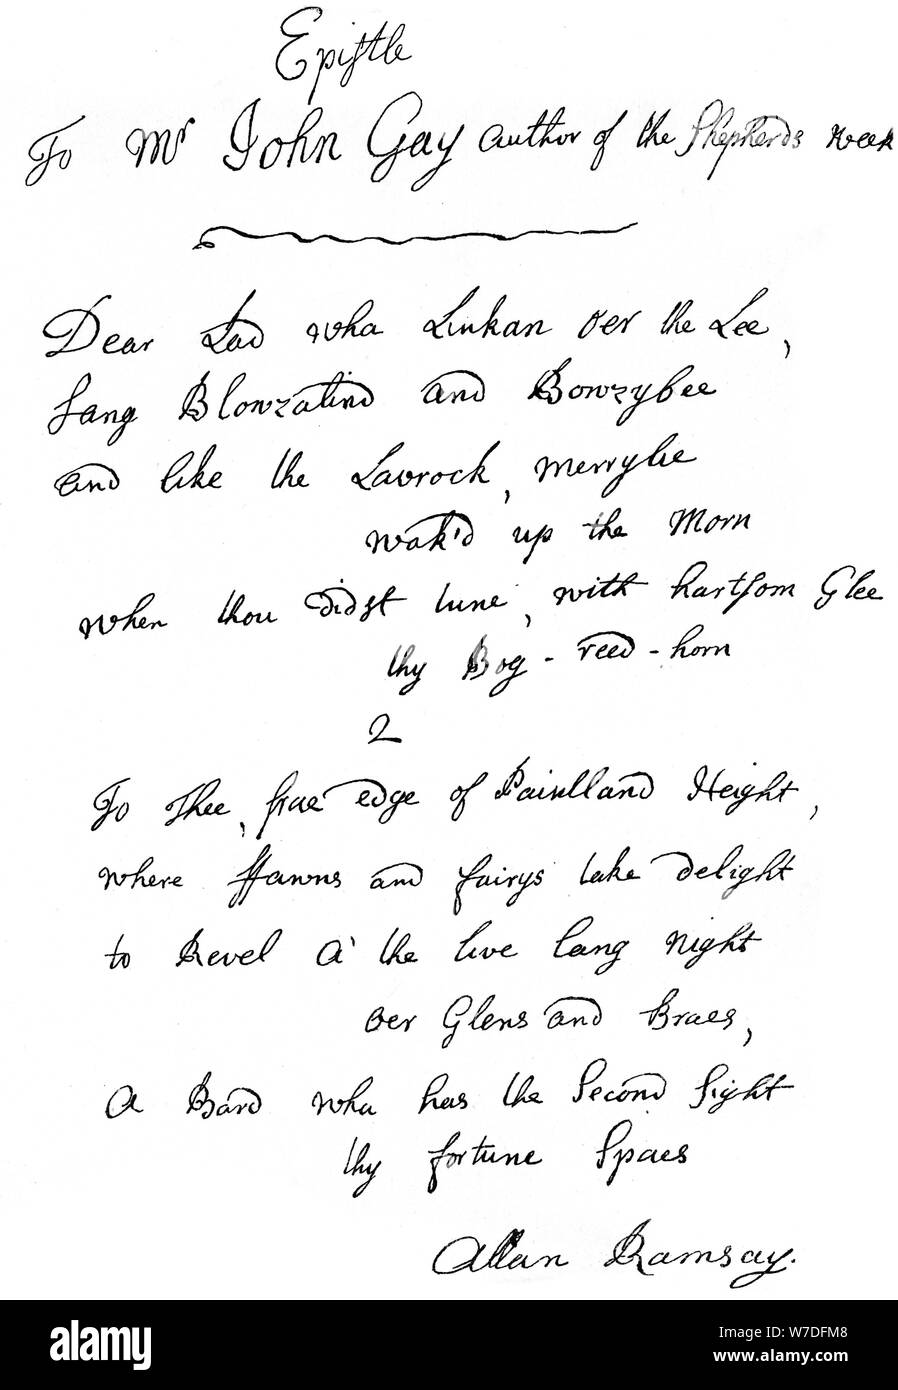 Epistle
To Mr John Gay author of the Shepherds week
Dear Lad wha Linkan oer the Lee,
Sang Blowzalind and Bowzybee
and like the Lavrock, merrylie
wak'd up the Morn
when thou didst tune, with hartsom Glee
thy Bog-reed-horn
2
To Thee, frae edge of Pentland Height,
where ffawns and fairys take delight
to Revel a' the live lang night
oer Glens and Braes,
a Bard wha has the Second Sight
thy fortune Spaes
Allan Ramsay.
alamy
Image ID: W7DFM8
www.alamy.com